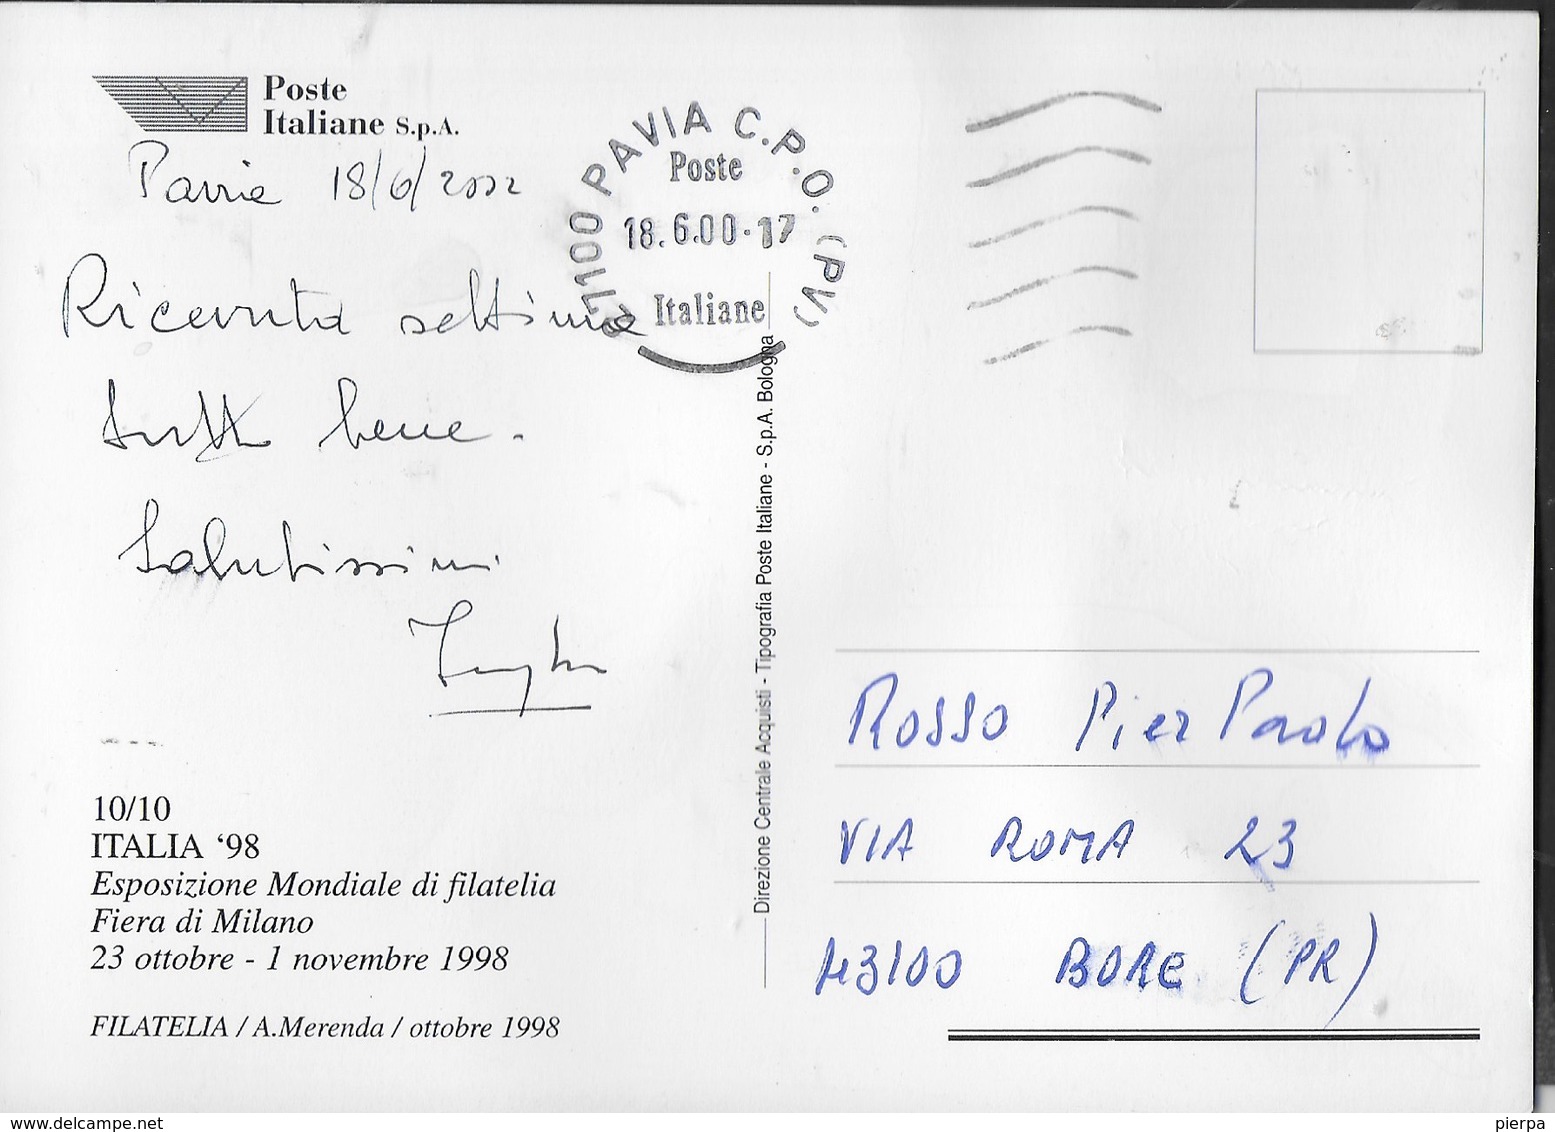 Poste
Italiane S.p.A.
Pavia 18/6/2002
Ricevuta settima
tutto bene.
Salutissimi
10/10
ITALIA ‘98
Esposizione Mondiale di filatelia
Fiera di Milano
23 ottobre - 1 novembre 1998
FILATELIA / A.Merenda / ottobre 1998
27100 PAVIA C.P.O. (PV)
Poste
18.6.00-17
Italiane
Direzione Centrale Acquisti - Tipografia Poste Italiane - S.p.A. Bologna
ROSSO Pier Paolo
VIA ROMA 23
43100 BORE (PR)
www.delcampe.net
pierpa